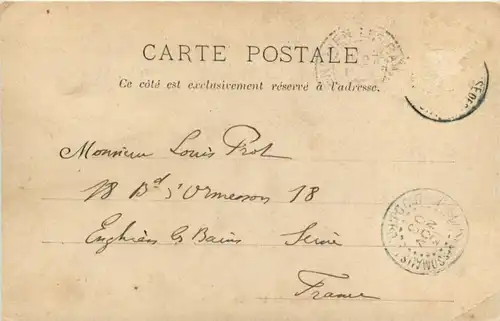 CARTE POSTALE
Ce côté est exclusivement réservé à l'adresse.
Monsieur Louis Prot
18 Bd d'Ormesson 18
Enghien les Bains Seine
France